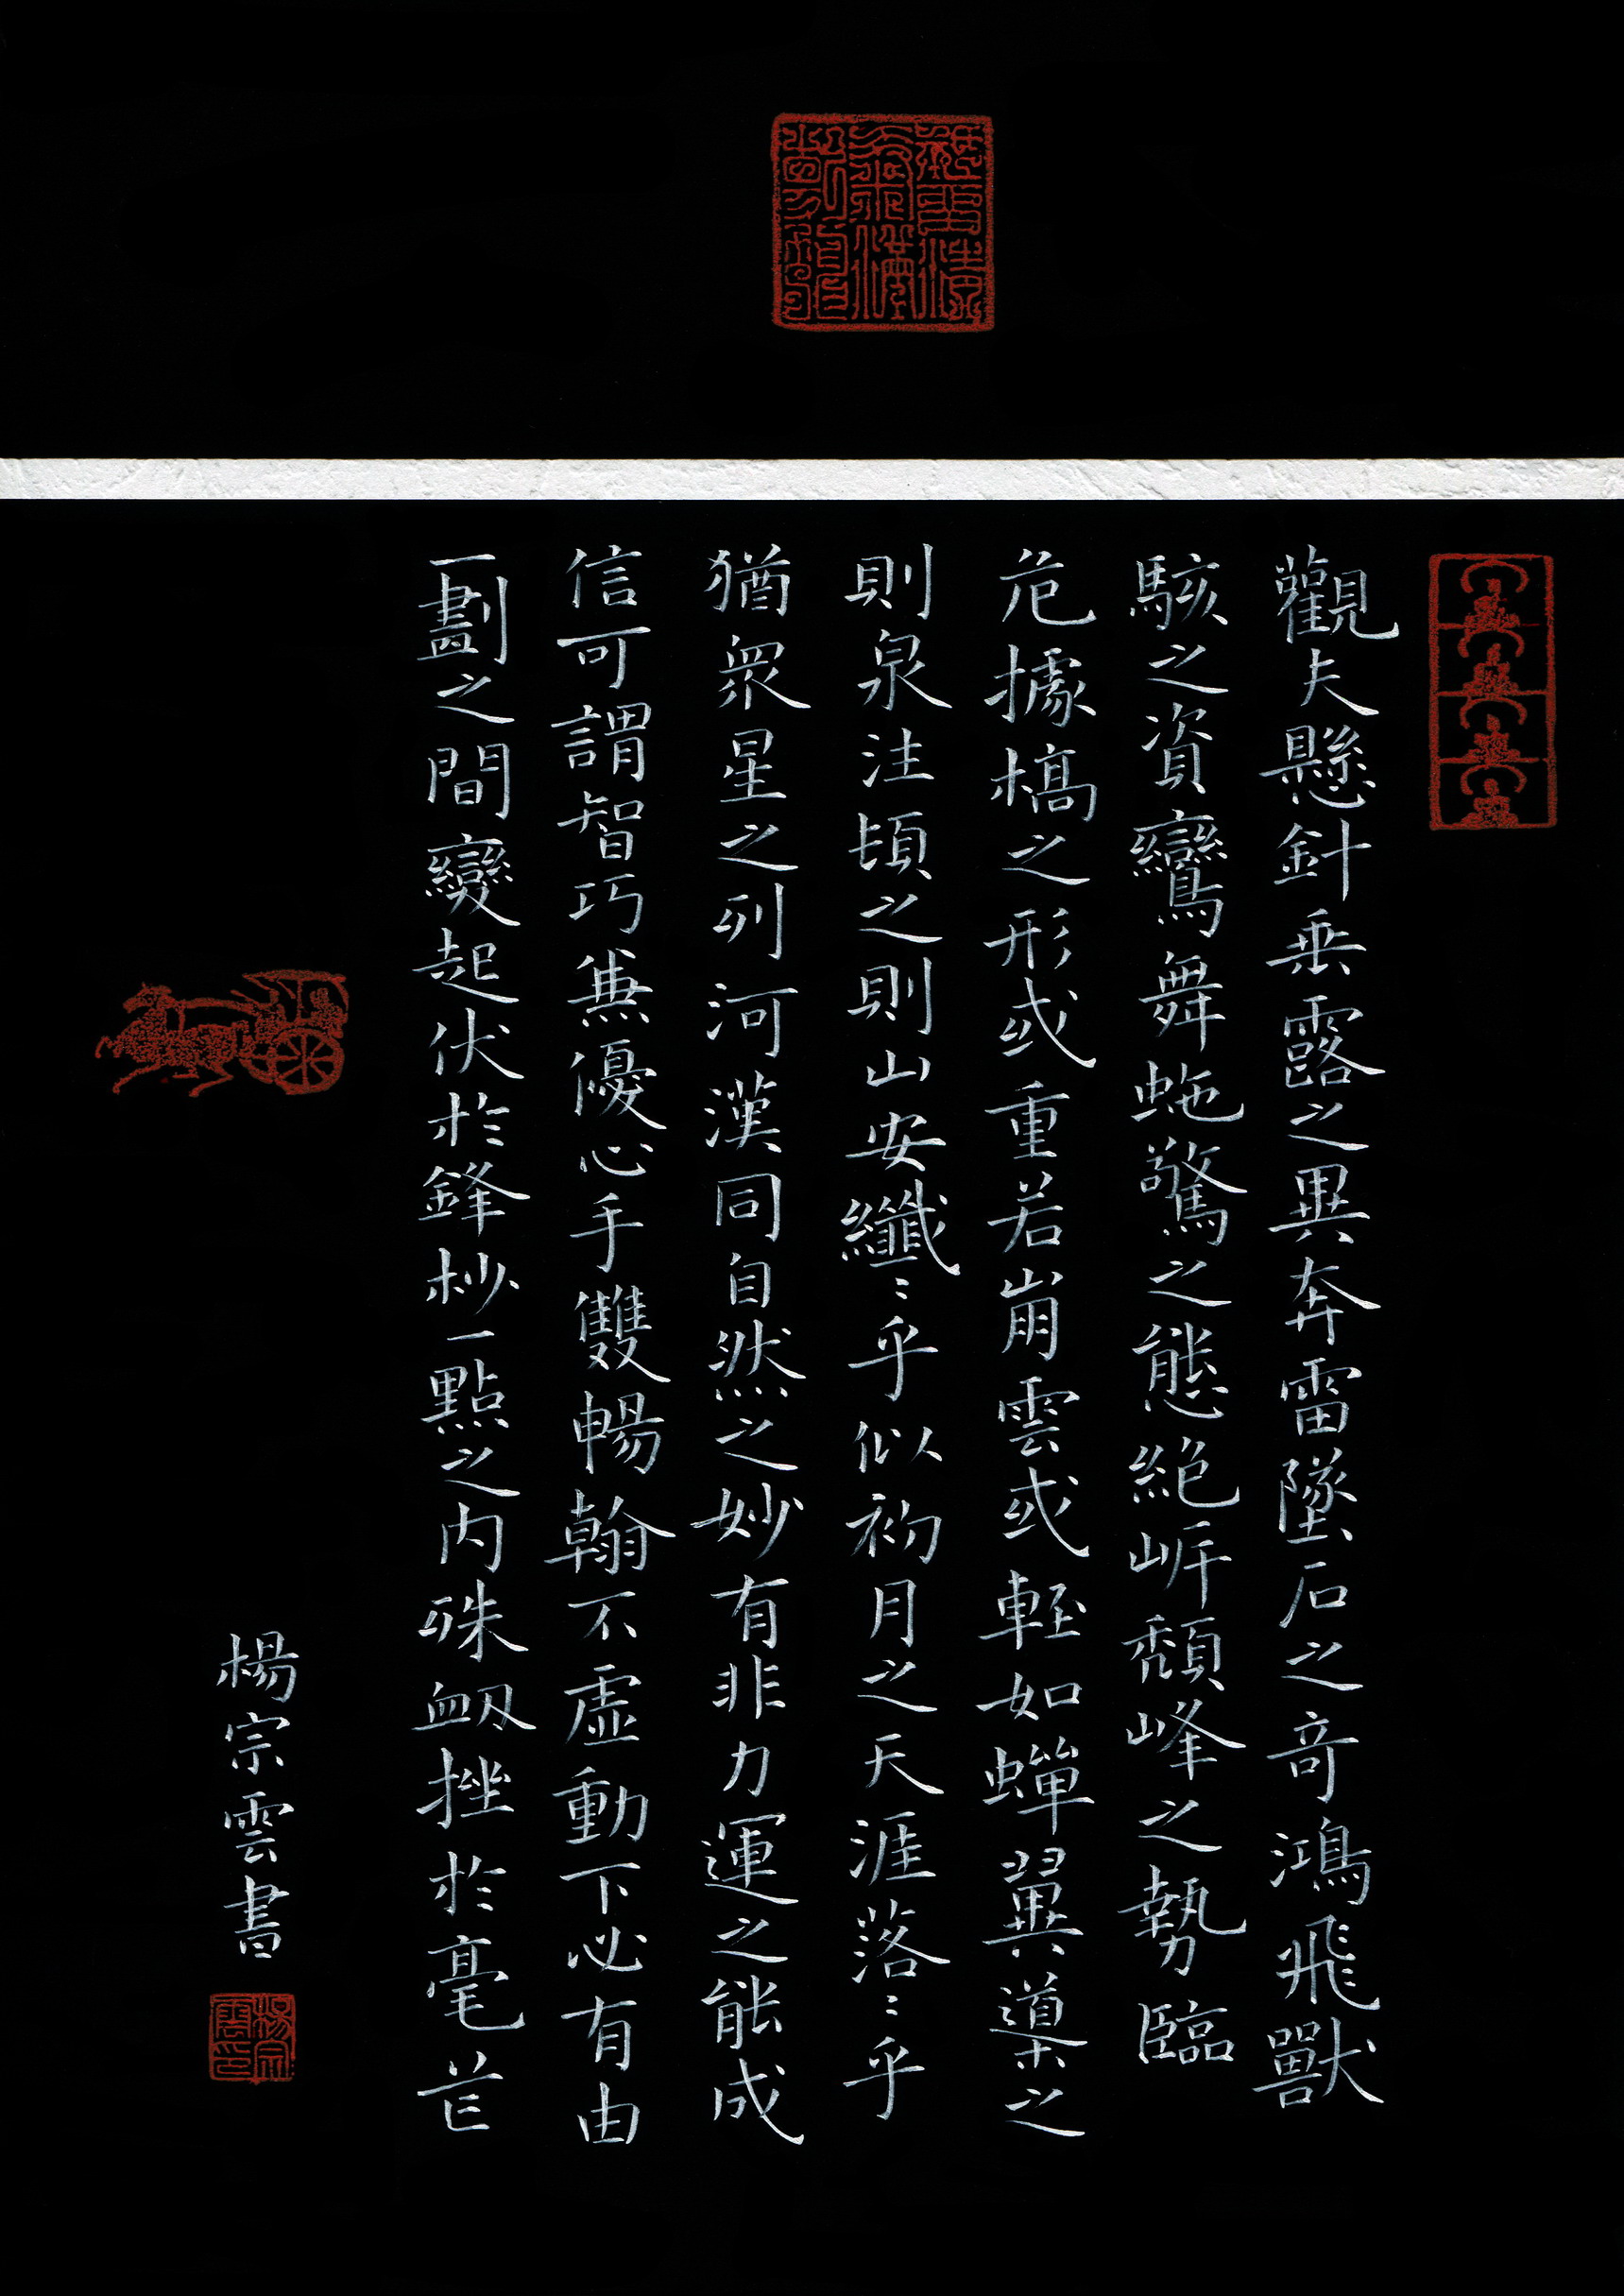 觀夫懸針垂露之異奔雷墜石之奇鴻飛獸
駭之資鸞舞虵驚之態絕岸頹峰之勢臨
危據槁之形或重若崩雲或輕如蟬翼導之
則泉注頓之則山安纖〻乎似初月之天涯落〻乎
猶衆星之列河漢同自然之妙有非力運之能成
信可謂智巧兼優心手雙暢翰不虛動下必有由
一劃之間變起伏於鋒杪一點之內殊衂挫於毫芒
楊宗雲書
楊宗雲印